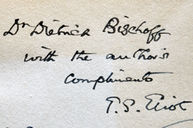 Dr Dietrich Bischoff
with the author's
compliments
T. S. Eliot